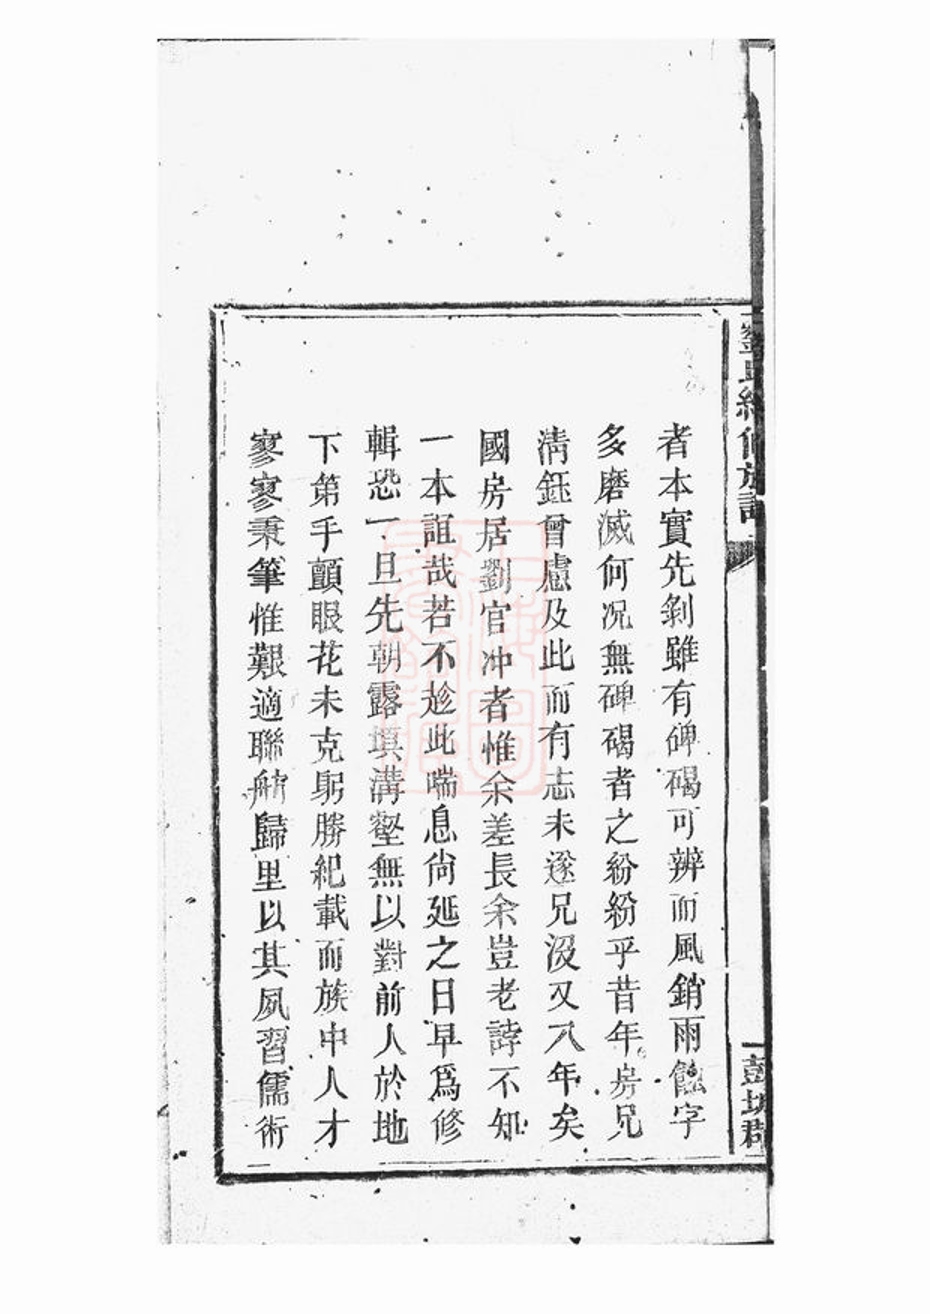 者本實先剝雖有碑碣可辨而風銷雨蝕字
多磨滅何况無碑碣者之紛紛乎昔年房兄
清鈺曾慮及此而有志未遂兄沒又八年矣
國房居劉官冲者惟余差長余豈老誖不知
一本誼哉若不趁此喘息尙延之日早爲修
輯恐一旦先朝露塡溝壑無以對前人於地
下第手顫眼花未克躬勝紀載而族中人才
寥寥秉筆惟艱適聯舫歸里以其夙習儒術
彭城郡